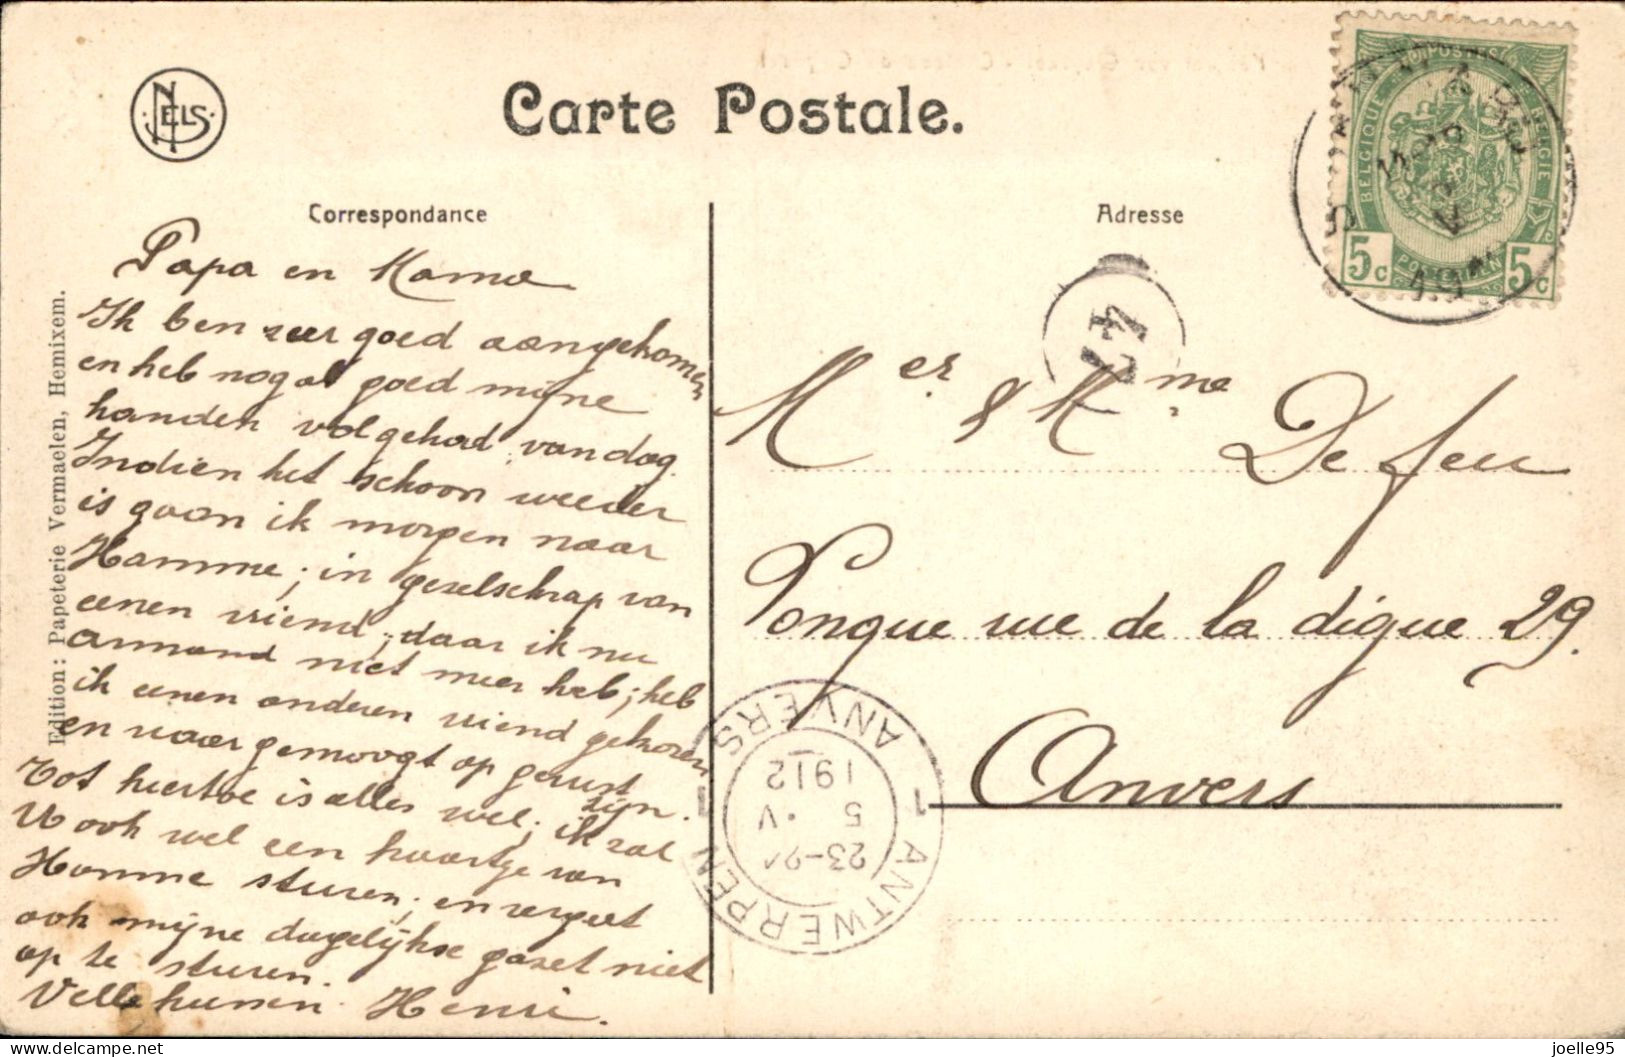 NELS
Carte Postale.
Correspondance
Adresse
Edition: Papeterie Vermaelen, Hemixem.
Papa en Mama
Ik ben zeer goed aangekomen
en heb nog al goed mijne
handen volgehad vandag.
Indien het schoon weeder
is gaan ik morgen naar
Hamme; in gezelschap van
eenen vriend; daar ik nu
Armand niet meer heb; heb
ik eenen anderen vriend gekozen
en waar gemoogt op gerust
zijn.
Tot hiertoe is alles wel; ik zal
U ook wel een kaartje van
Hamme sturen; en vergeet
ook mijne dagelijkse gazet niet
op te sturen.
Velle kussen Henri.
BELGIQUE
BELGIË
5c
5c
47
Mer & Mme De feu
Longue rue de la digue 29.
Anvers
1 ANTWERPEN 1 ANVERS
23-24
5 .V
1912
delcampe.net
joelle95